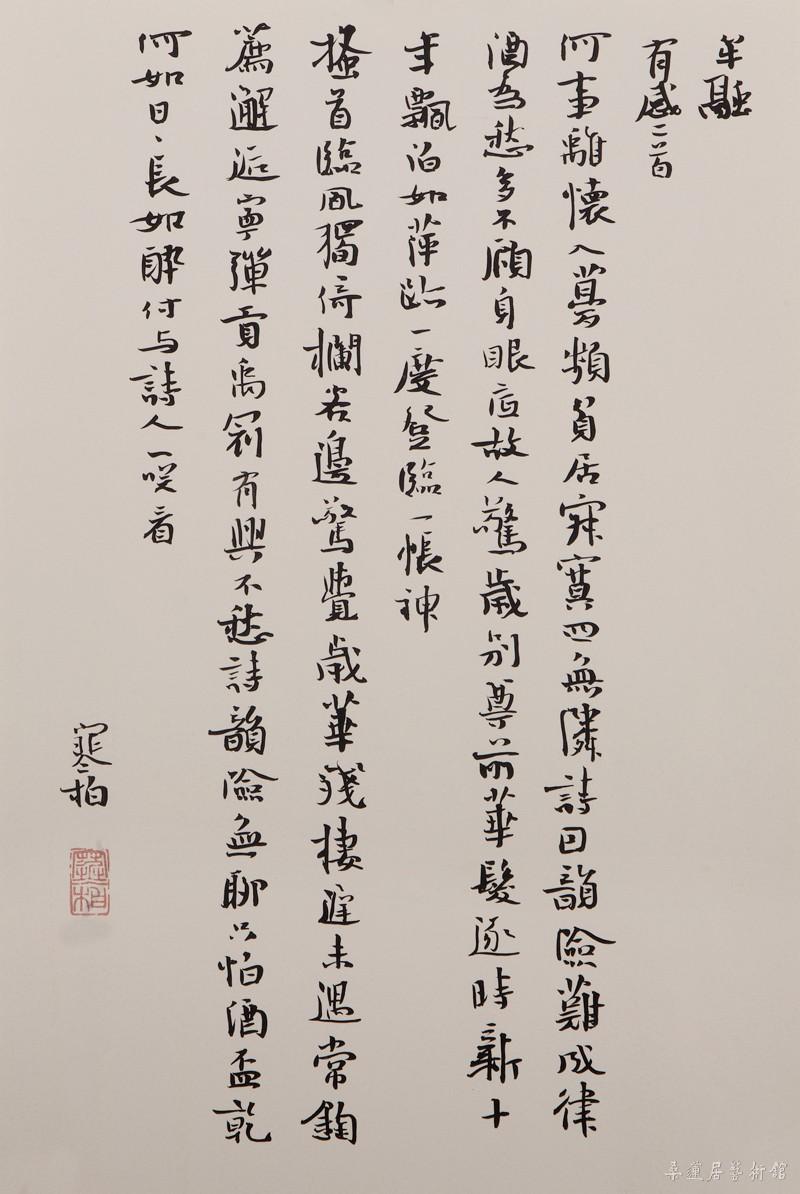 牟融
有感二首
何事離懷入夢頻貧居寂寞四無隣詩因韻險難成律
酒為愁多不顧身眼底故人驚歲別尊前華髮逐時新十
年飄泊如萍跡一度登臨一悵神
搔首臨風獨倚欄客邊驚覺歲華殘棲遲未遇常鈞
薦邂逅寧彈貢禹冠有興不愁詩韻險無聊只怕酒盃乾
何如日、長如醉付与詩人一咲看
寒柏
桑蓮居藝術館